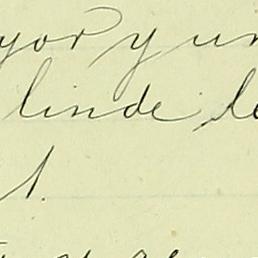 yor y un
linde le
1.